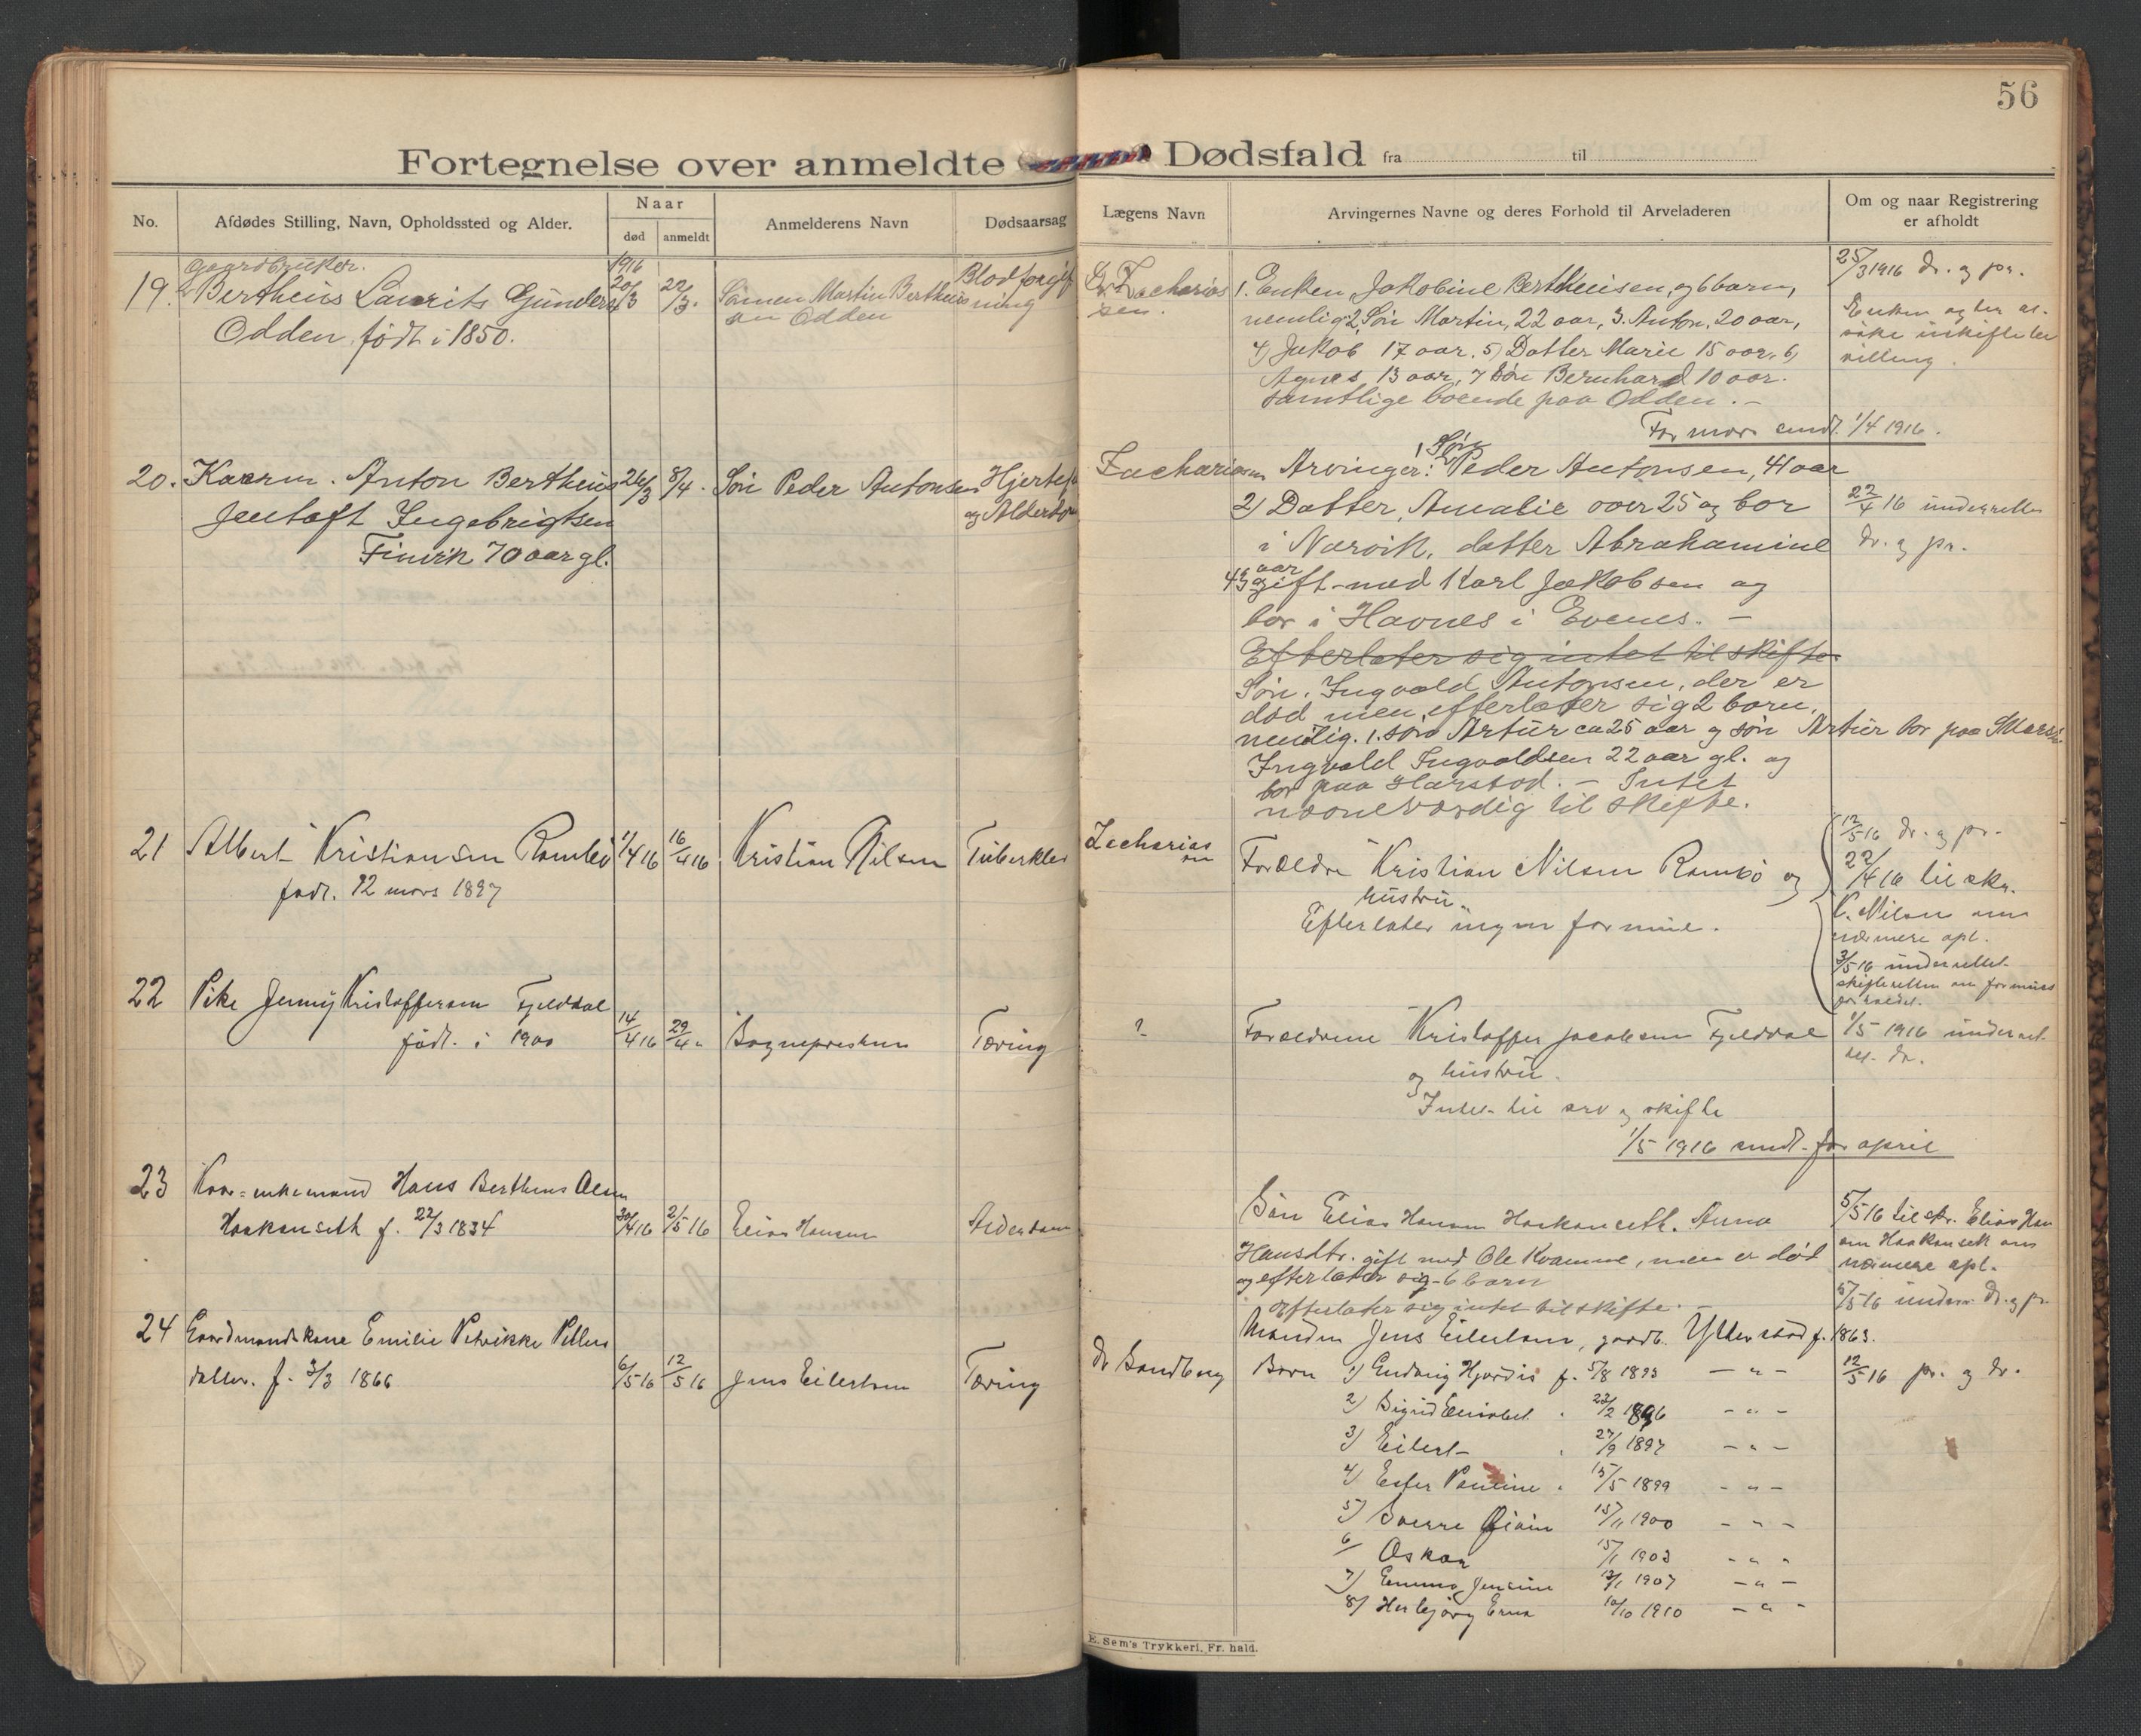 56
Fortegnelse over anmeldte Dødsfald fra til
No.
Afdødes Stilling, Navn, Opholdssted og Alder.
Naar
død
anmeldt
Anmelderens Navn
Dødsaarsag
Lægens Navn
Arvingernes Navne og deres Forhold til Arveladeren
Om og naar Registrering
er afholdt
Gaardbruker.
19. Bertheus Laurits Gunders
Odden, født i 1850.
1916
20/3
22/3.
Sønnen Martin Bertheus
sen Odden
Blodforgift
ning
Dr Zacharias
sen.
1. Enken, Jakobine Bertheusen, og 6 barn,
nemlig: 2, Søn Martin, 22 aar, 3. Anton, 20 aar,
4) Jakob 17 aar. 5) Datter Marie 15 aar, 6)
Agnes 13 aar, 7 Søn Bernhard 10 aar.
samtlige boende paa Odden. -
25/3 1916 dr. og pr.
Enken og
uskifte be
villing.
For mars sendt. 1/4 1916.
20. Kaarm. Anton Bertheus
Jentoft Ingebrigtsen
Finvik 70 aar gl.
26/3
8/4.
Søn Peder Antonsen
Hjertef
og Alderdom
Zachariassen
Arvinger: 1 Søn Peder Antonsen, 41 aar
2) Datter, Amalie over 25 og bor
i Narvik, datter Abrahamine
43 aar gift med Karl Jakobsen og
bor i Havnes i Evenes. -
Efterlater sig intet til skifte
Søn. Ingvald Antonsen, der er
død men efterlater sig 2 barn,
nemlig. 1. søn Artur ca 25 aar og søn Artur bor paa
Ingvald Ingvaldsen 22 aar gl. og
bor paa Harstad. - Intet
navneværdig til skifte.
22/4 16 underrettet
dr. og pr.
21 Albert Kristiansen Rambø
født. 12 mars 1897
1/4 16
16/4 16
Kristian Nilsen
Tuberkler
Zacharias
sen
Forældre Kristian Nilsen Rambø og
hustru.
Efterlater ingen formue.
12/5 16 dr. og pr.
22/4 16 til skr.
K. Nilsen om
nærmere opl.
3/5 16 underrettet
skifteretten om formues
forholdet.
22 Pike Jenny Kristoffersen Fjelddal
født. i 1900
14/4 16
29/4 "
Sognepresten
Tæring
?
Forældrene Kristoffer Jacobsen Fjelddal
og hustru.
Intet til arv og skifte
1/5 1916 underret
tet dr.
1/5 1916 sendt for april
23 Kaar-enkemand Hans Bertheus Olsen
Haakanseth f. 22/3 1834
30/4 16
2/5 16
Elias Hansen
Alderdom
Søn Elias Hansen Haakanseth. Anna
Hansdtr. gift med Ole Kvamme, men er død
og efterlater sig 6 barn
Efterlater sig intet til skifte. -
5/5 16 til skr. Elias Han
sen Haakanseth om
nærmere opl.
5/5 16 underr. dr. og pr.
24 Gaardmandskone Emilie Petrikke Petters
datter. f. 3/3 1866
6/5 16
12/5 16
Jens Eilertsen
Tæring
Dr Sandberg
Manden Jens Eilertsen, gaardb. Ytterstad f. 1863.
Barn 1) Hjørdis f. 5/8 1893 - " -
2) Sigrid Elisabet " 22/2 1896 - " -
3) Eilert " 27/9 1897 - " -
4) Ester Pauline " 15/5 1899 - " -
5) Sverre Eivin 15/11 1900 - " -
6 Oskar 15/1 1903 - " -
7) Emma Jensine 13/1 1907 - " -
8) Herbjørg Erna 10/10 1910 - " -
12/5 16 pr. og dr.
E. Sem's Trykkeri, Fr.hald.